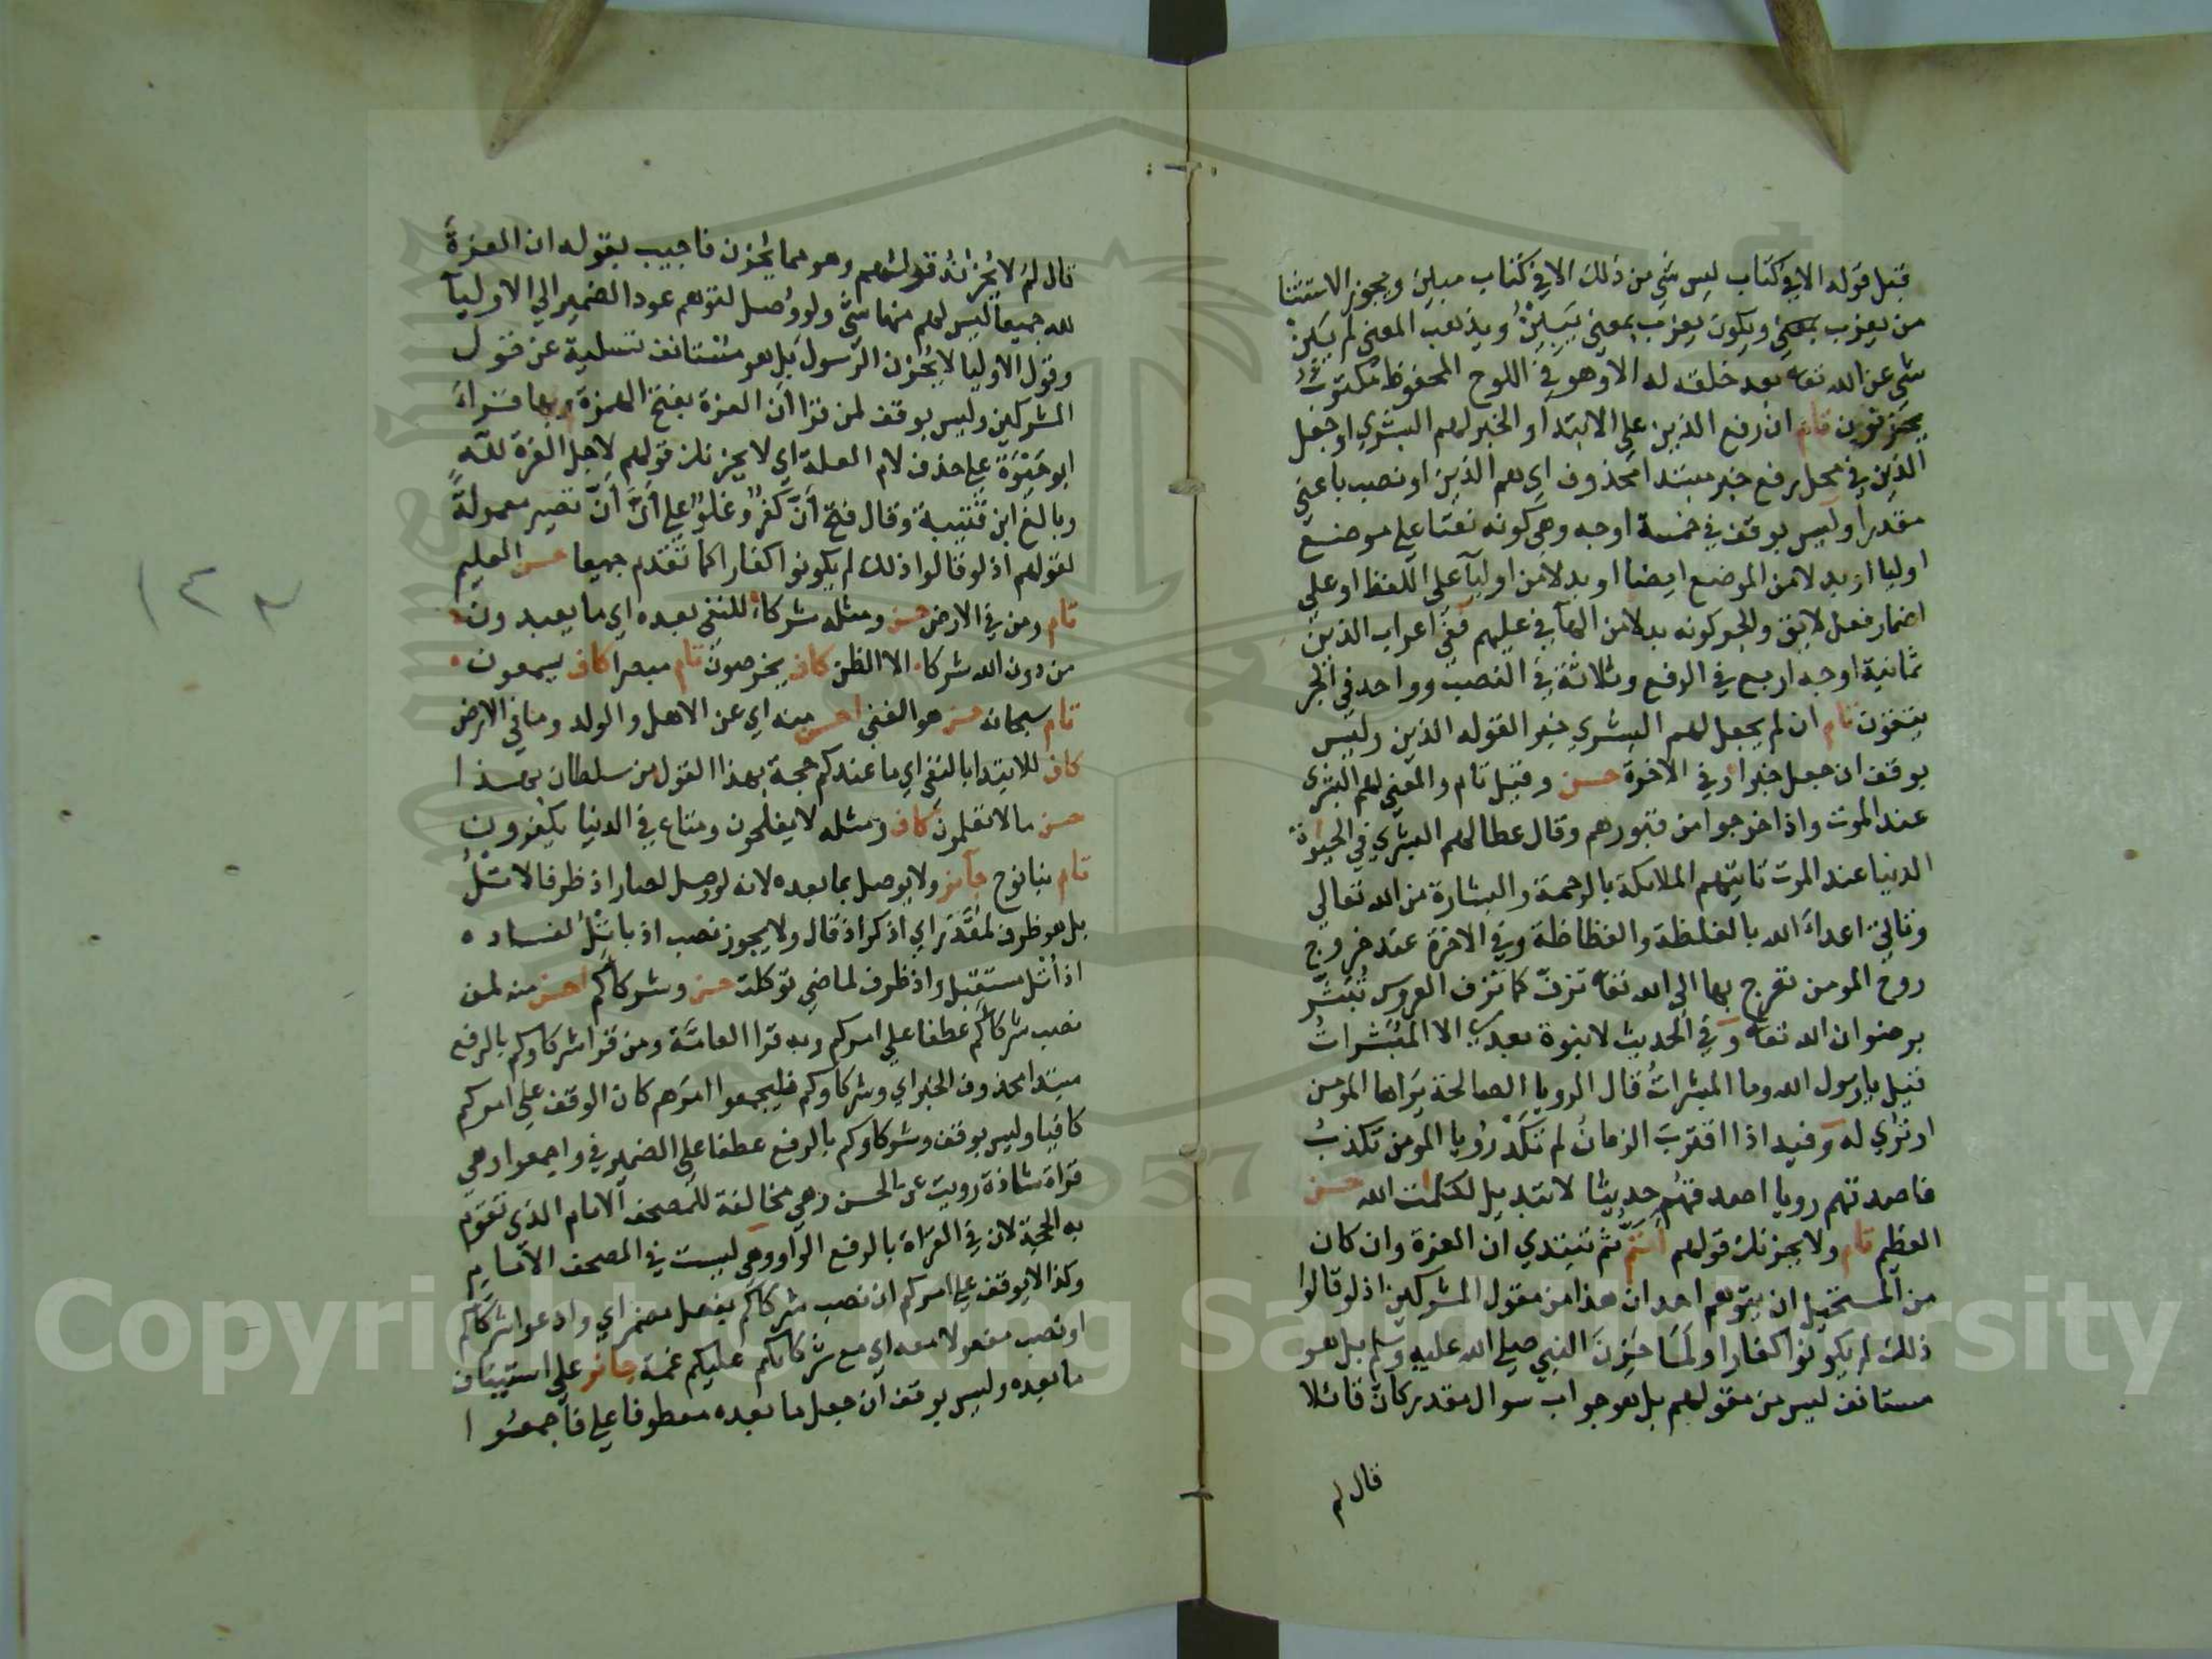 قبل قوله الا في كتاب ليس شي من ذلك الا في كتاب مبين ويجوز الاستثنا
من يعزب ويكون يعزب بمعنى يبين ويذهب المعنى لم يبن
شي عن الله تعا بعد خلقه له الا وهو في اللوح المحفوظ مكتوب
يحزنون تام ان رفع الذين على الابتدا والخبر لهم البشري او جعل
الذين في محل رفع خبر مبتدا محذوف اي هم الذين او نصب باعني
مقدرا وليس بوقف في خمسة اوجه وهي كونه نعتا على موضع
اوليا او بدلا من الموضع ايضا او بدلا من اوليآ على اللفظ او على
اضمار فعل لايق والجر كونه بدلا من الهآ في عليهم ففي اعراب الذين
ثمانية اوجه اربع في الرفع وثلاثة في النصب وواحد في الجر
يتقون تام ان لم يجعل لهم البشري خبرا لقوله الذين وليس
بوقف ان جعل خبرا وفي الاخرة حسن وقيل تام والمعنى لهم البشرى
عند الموت واذا خرجوا من قبورهم وقال عطا لهم البشري في الحيوة
الدنيا عند الموت تاتيهم الملايكة بالرحمة والبشارة من الله تعالي
وتاتي اعداء الله بالغلظة والفظاظة وفي الاخرة عند خروج
روح المومن تعرج بها الى الله تعا تزف كما تزف العروس تبشر
برضوان الله تعا وفي الحديث لا نبوة بعدي الا المبشرات
قيل يا رسول الله وما المبشرات قال الرويا الصالحة يراها المومن
او تري له وفيه اذا اقترب الزمان لم تكد رؤيا المومن تكذب
فاصدقهم رويا اصدقهم حديثا لا تبديل لكلمات الله حسن
العظيم تام ولا يحزنك قولهم اتم ثم تبتدي ان العزة وان كان
من المستحيل ان يتوهم احد ان هذا من مقول المشركين اذ لو قالوا
ذلك لم يكونوا كفارا ولما حزن النبي صلى الله عليه وسلم بل هو
مستانف ليس من مقولهم بل هو جواب سوال مقدر كان قائلا
قال لم
قال لم لا يحزنه قولهم وهو مما يحزن فاجيب بقوله ان العزة
لله جميعا ليس لهم منها شي ولو وصل لتوهم عود الضمير الي الاوليآ
وقول الاوليا لا يحزن الرسول بل هو مستانف تسلية عن قول
المشركين وليس بوقف لمن قرا ان العزة بفتح الهمزة وبها قراء
ابو حيوة على حذف لام العلة اي لا يحزنك قولهم لاجل العزة لله
وبالغ ابن قتيبة وقال فتح ان كفر وغلو على ان ان تصير معمولة
لقولهم اذ لو قالوا ذلك لم يكونوا كفارا كما تقدم جميعا حسن العليم
تام ومن في الارض حسن ومثله شركاء للنفي بعده اي ما يعبدون
من دون الله شركا الا الظن كاف يخرصون تام مبصرا كاف يسمعون
تام سبحانه حسن هو الغني احسن منه اي عن الاهل والولد وما في الارض
كاف للابتدا بالنفي اي ما عندكم حجة بهذا القول من سلطان بهذا
حسن ما لا تعلمون كاف ومثله لا يفلحون ومتاع في الدنيا يكفرون
تام نبا نوح جآئز ولا يوصل بما بعده لانه لو وصل لصار اذ ظرفا لاتل
بل هو ظرف لمقدر اي اذكر اذ قال ولا يجوز نصب اذ باتل لفساده
اذ اتل مستقبل واذ ظرف لما مضي توكلت حسن وشركاكم احسن منه لمن
نصب شركاكم عطفا علي امركم وبه قرا العامة ومن قرا شركاوكم بالرفع
مبتدا محذوف الخبر اي وشركاوكم فليجمعوا امرهم كان الوقف علي امركم
كافيا وليس بوقف وشركاوكم بالرفع عطفا على الضمير في واجمعوا وهي
قراة شاذة رويت عن الحسن وهي مخالفة للمصحف الامام الذي تقوم
به الحجة لان في القراة بالرفع الواو وهي ليست في المصحف الامام
وكذا لا يوقف على امركم ان نصب شركاكم بفعل مضمر اي وادعوا شركاكم
او نصب مفعولا معه اي مع شركائكم عليكم غمة جائز على استيناف
ما بعده وليس بوقف ان جعل ما بعده معطوفا على فاجمعوا
١٢٣
Copyright © King Saud University
1957